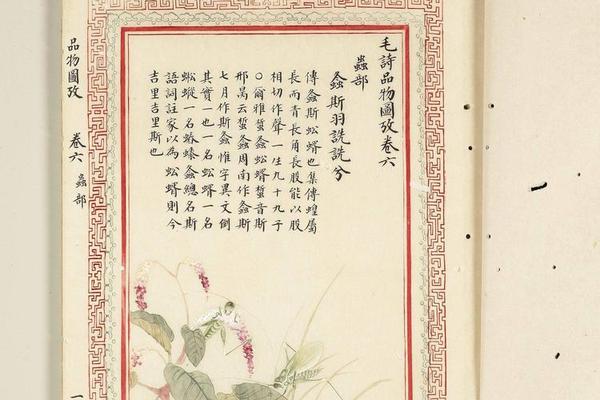 毛詩品物圖攷卷六
蟲部
螽斯羽詵詵兮
傳螽斯蚣蝑也集傳蝗屬
長而青長角長股能以股
相切作聲一生九十九子
○爾雅蜤螽蚣蝑蜤音斯
邢昺云蜤螽周南作螽斯
七月作斯螽惟字異文倒
其實一也一名蚣蝑一名
一名螽總名斯
語詞註家以為蚣蝑則今
吉里吉里斯也
品物圖攷 卷六 蟲部 一